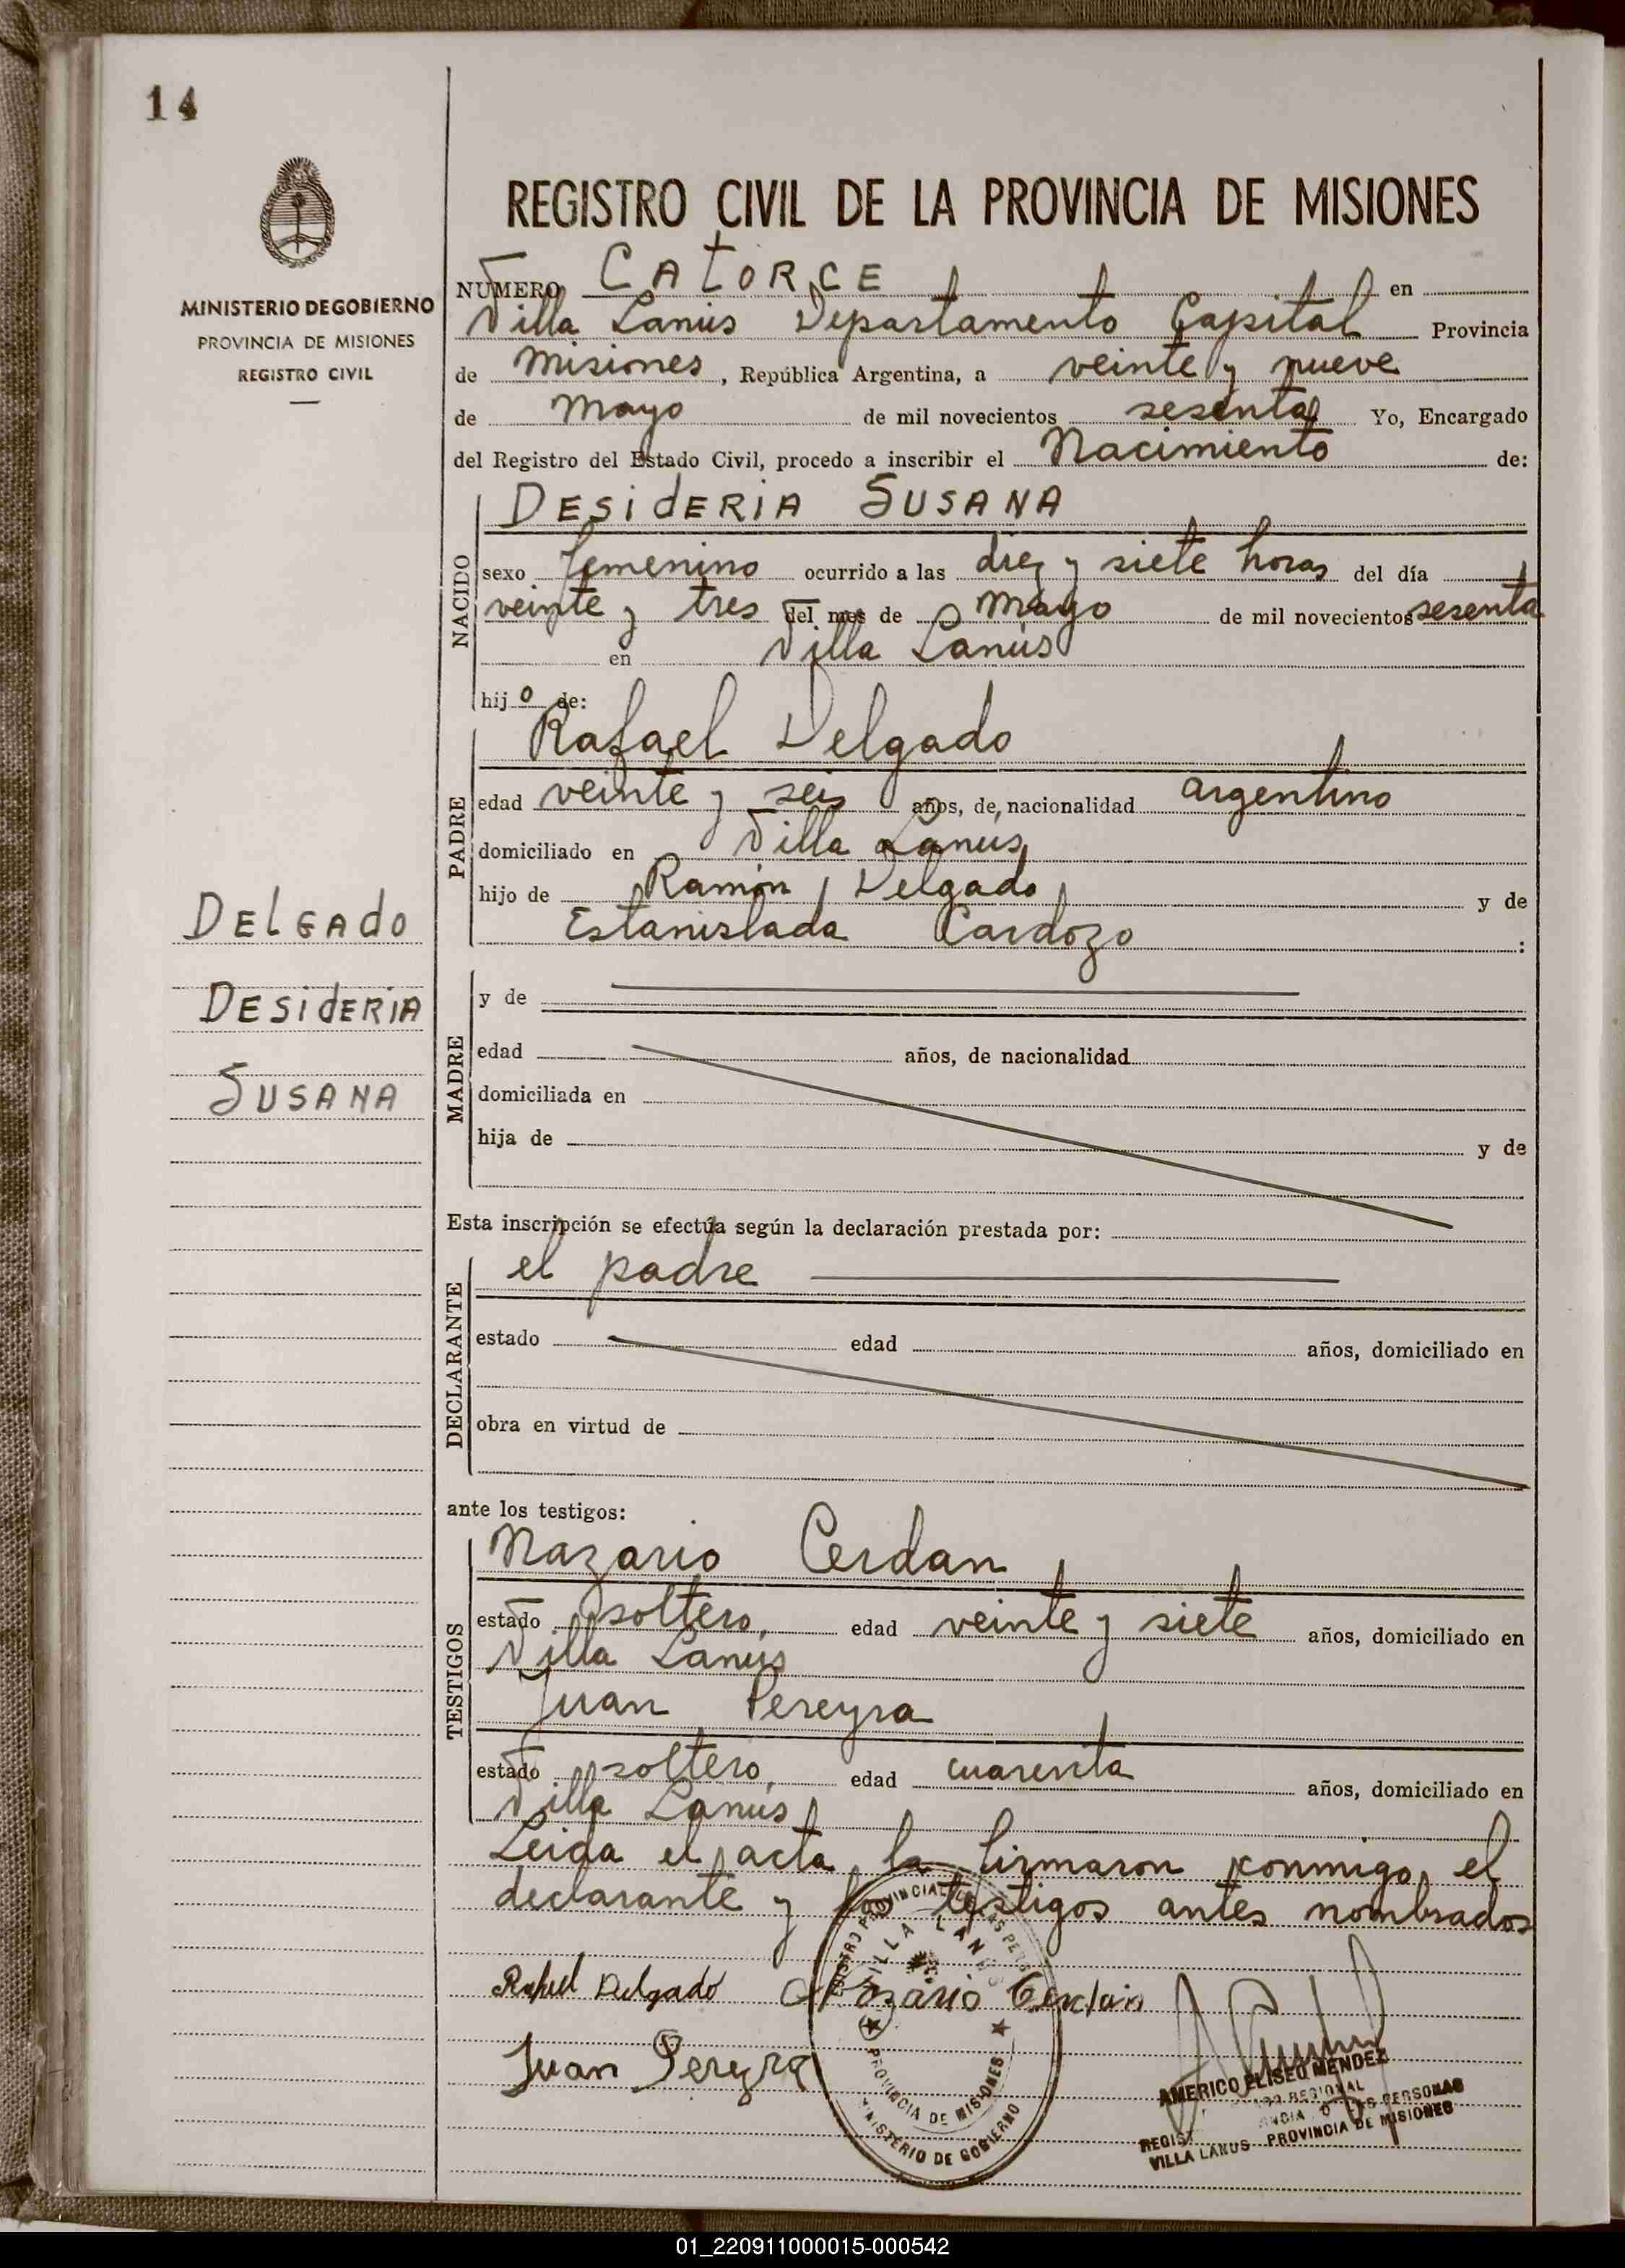 14
MINISTERIO DE GOBIERNO
PROVINCIA DE MISIONES
REGISTRO CIVIL
REGISTRO CIVIL DE LA PROVINCIA DE MISIONES
NUMERO CATORCE en
Villa Lanús Departamento Capital Provincia
de Misiones, República Argentina, a veinte y nueve
de Mayo de mil novecientos sesenta Yo, Encargado
del Registro del Estado Civil, procedo a inscribir el Nacimiento de:
NACIDO
DESIDERIA SUSANA
sexo femenino ocurrido a las diez y siete horas del día
veinte y tres del mes de Mayo de mil novecientos sesenta
en Villa Lanús
hijo de:
PADRE
Rafael Delgado
edad veinte y seis años, de nacionalidad argentino
domiciliado en Villa Lanús
hijo de Ramón Delgado y de
Estanislada Cardozo :
DELGADO
DESIDERIA
SUSANA
MADRE
y de
edad años, de nacionalidad
domiciliada en
hija de y de
Esta inscripción se efectúa según la declaración prestada por:
DECLARANTE
el padre
estado edad años, domiciliado en
obra en virtud de
ante los testigos:
TESTIGOS
Nazario Cerdan
estado soltero, edad veinte y siete años, domiciliado en
Villa Lanús
Juan Pereyra
estado soltero, edad cuarenta años, domiciliado en
Villa Lanús
Leida el acta, la firmaron conmigo, el
declarante y los testigos antes nombrados
Rafael Delgado Nazario Cerdan
Juan Pereyra
VILLA LANUS
PROVINCIA DE MISIONES
MINISTERIO DE GOBIERNO
AMERICO ELISEO MENDEZ
VILLA LANUS PROVINCIA DE MISIONES
01_220911000015-000542